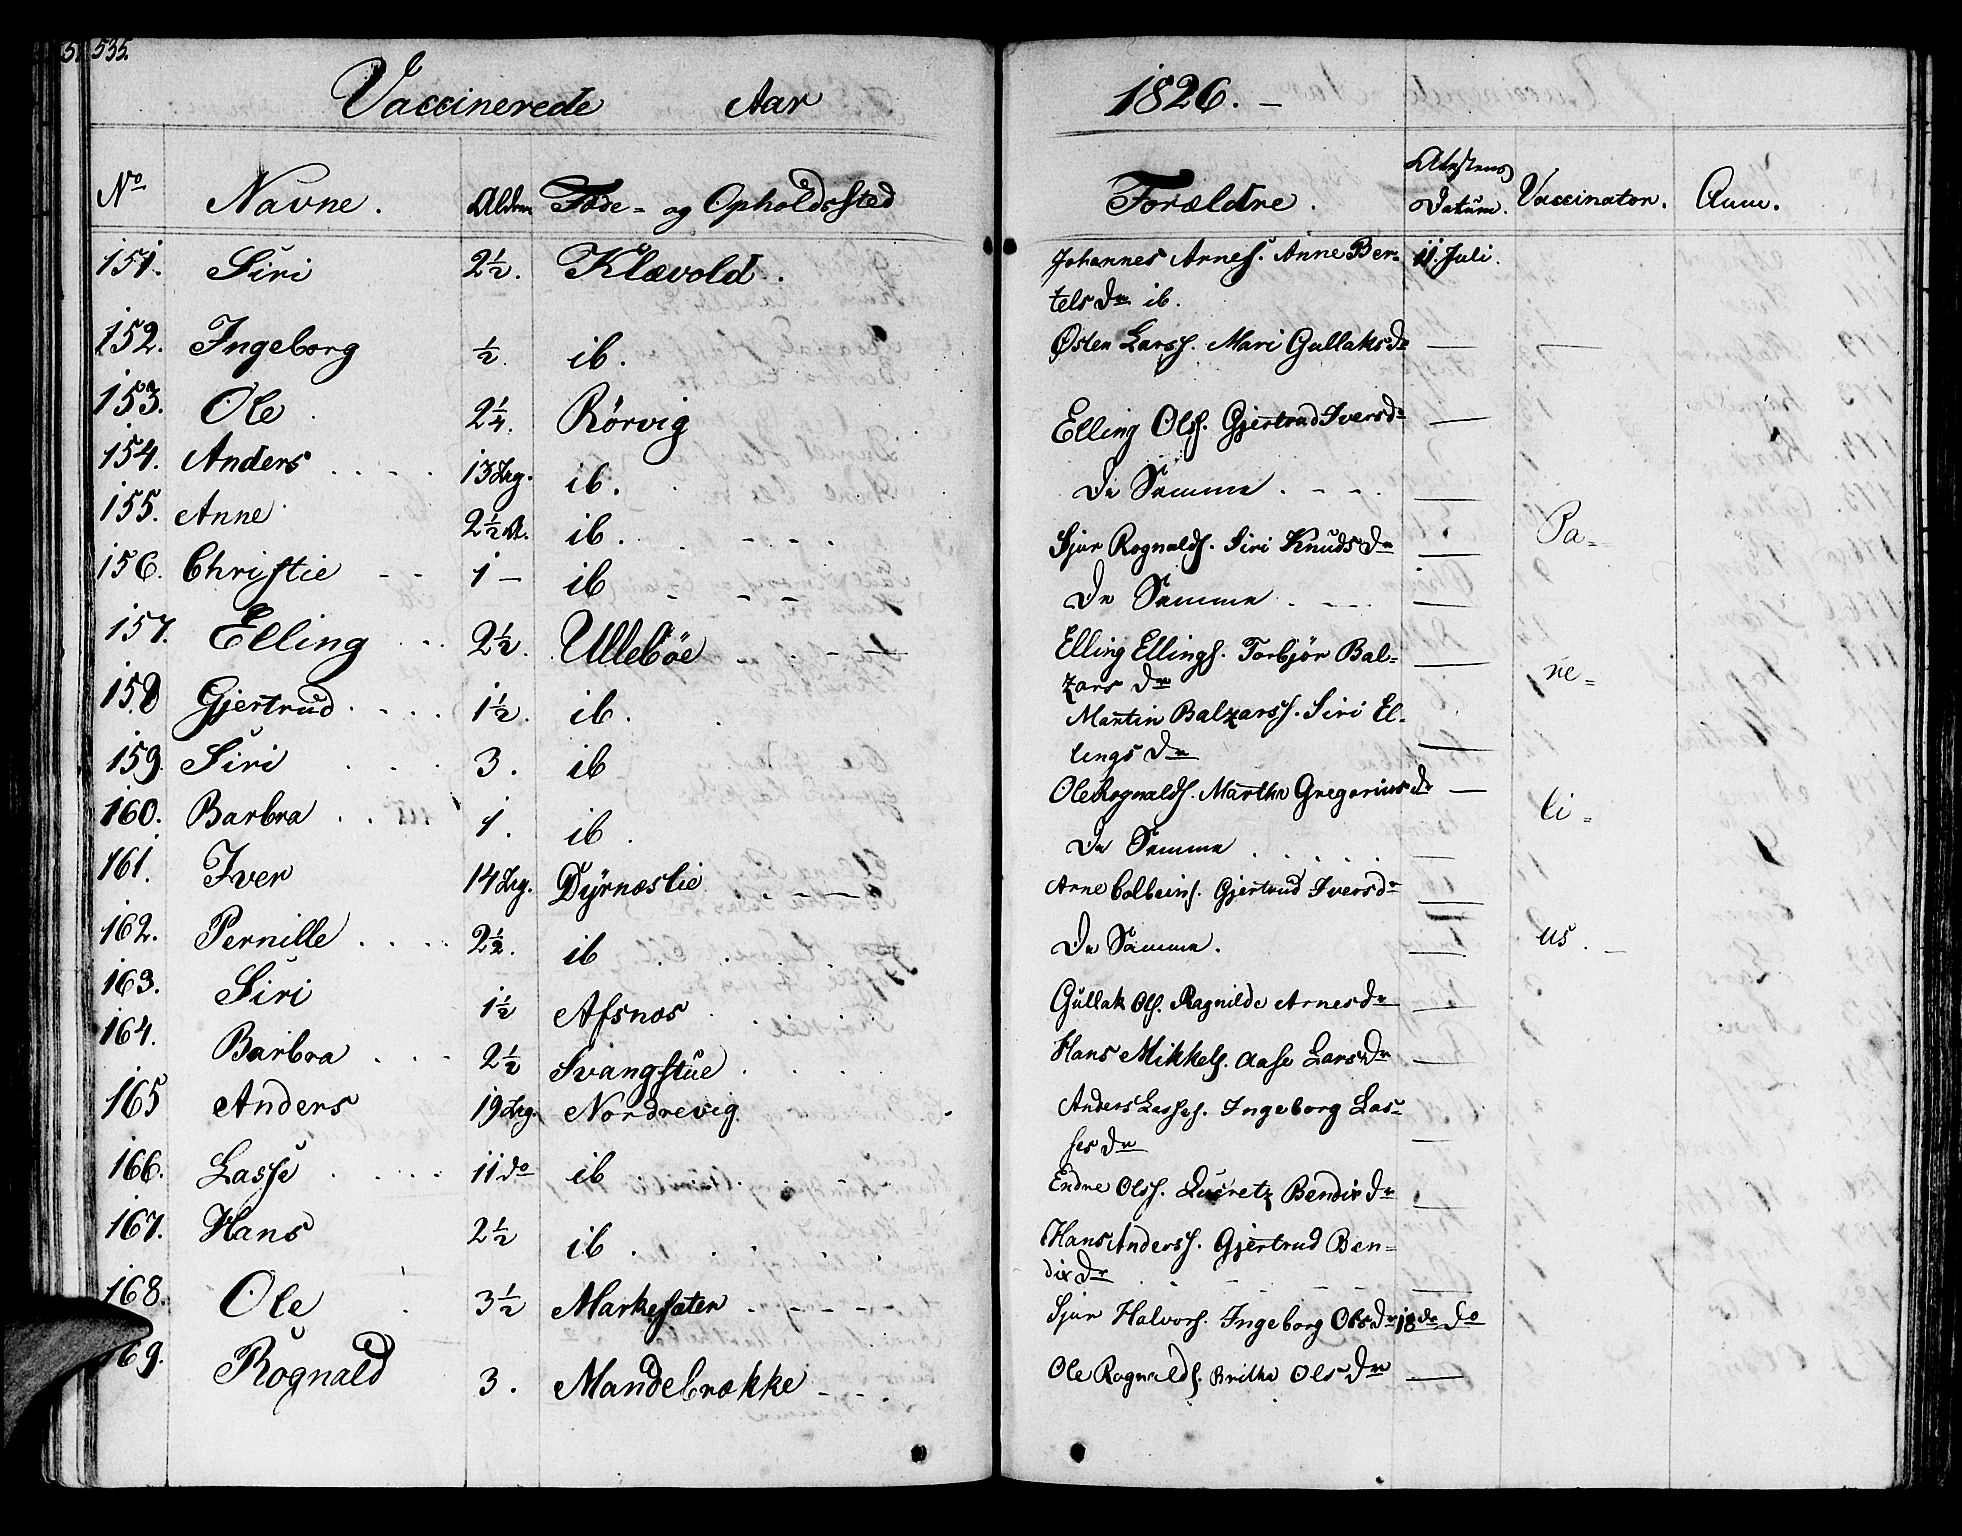 535.
Vaccinerede Aar 1826. –
No Navne. Alder Føde- og Opholdssted Forældre. Attestens Datum. Vaccinator. Anm.
151. Siri 2½. Klævold. Johannes Arnes. Anne Ber- 11. Juli.
tels Dr ib.
152. Ingeborg ½. ib. Østen Larss. Mari Gullaksdr —
153. Ole 2¼. Rørvig Elling Olss. Gjertrud Iversdr —
154. Anders 13 Ug. ib. De Samme —
155. Anne 2½ A. ib. Sjur Rognalds. Siri Knuds Dr — Pa-
156. Christie 1 – ib De Samme —
157. Elling 2½. Ullebøe Elling Ellings. Torbjør Bal- — ne-
zars Dr
158 Gjertrud 1½. ib. Martin Balzarss. Siri El-
lings Dr —
159. Siri 3. ib Ole Rognalds. Martha Gregorius dr — li-
160. Barbra 1. ib. De Samme —
161. Iver 14 Ug. Dyrnæslie Arne Colbeins. Gjertrud Iversdr —
162. Pernille 2½. ib De Samme. — us. –
163. Siri 1½ Afsnos Gullak Ols. Ragnilde Arnesdr —
164. Barbra 2½ Svangstue Hans Mikkels. Aase Larsdr —
165 Anders 19 Ug. Nordrevig Anders Lasses. Ingeborg Las-
ses dr —
166. Lasse 11 do ib Endre Olss. Lucretz Bendix dr —
167. Hans 2½ ib. Hans Anderss. Gjertrud Ben-
dix Dr —
168. Ole 3½ Markesæter Sjur Halvors. Ingeborg Olsdr 18de do
169. Rognald 3. Mandebrække Ole Rognalds. Britha Ols Dr —